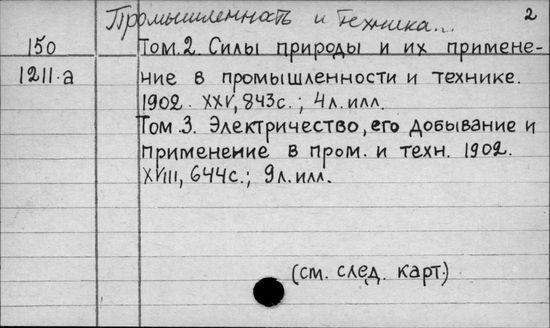 Промышленность и техника... 2
150 Том.2. Силы природы и их примене-
1211.а ние в промышленности и технике.
1902. XXV, 843с.; 4л.илл.
Том.3. Электричество, его добывание и
применение в пром. и техн. 1902.
XVIII, 644с.; 9л.илл.
(см. след. карт.)